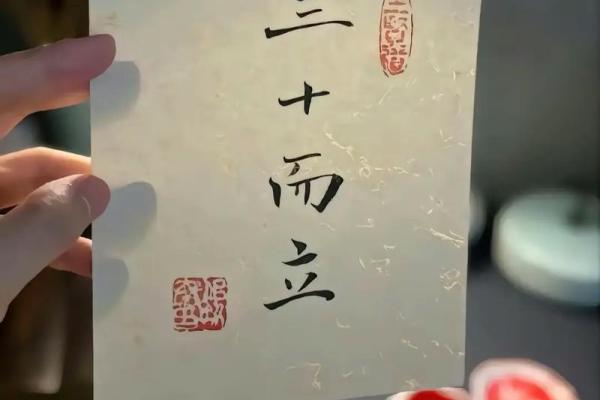 三十而立